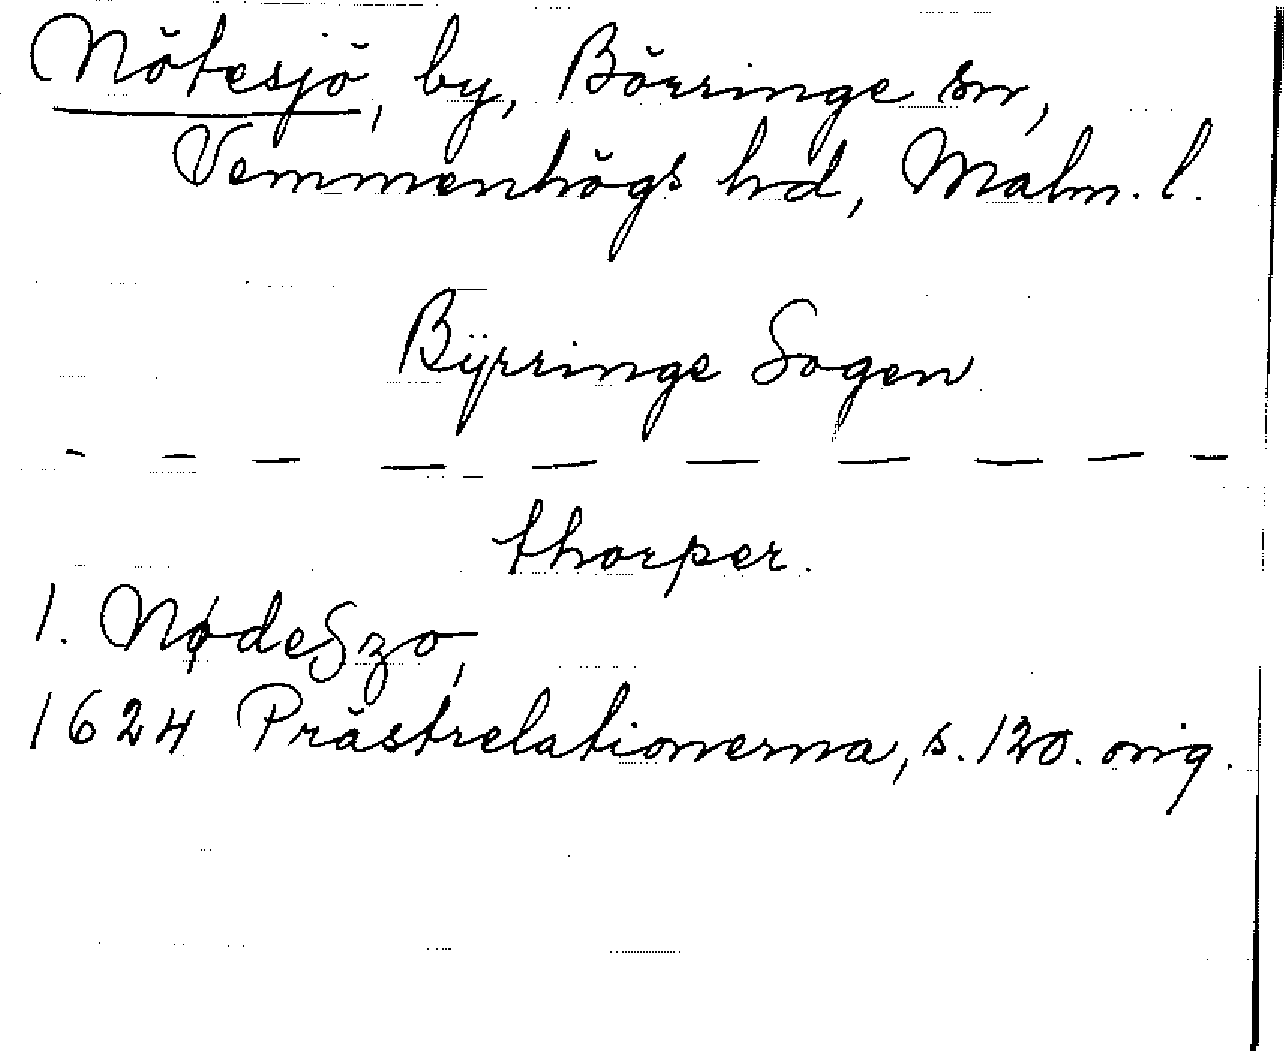 Nötesjö, by, Börringe sn,
Vemmenhögs hd, Malm. l.
Bÿrringe Sogen
- - - - - - - - - -
thorper.
1. NødeSzo,
1624 Prästrelationerna, s. 120. orig.